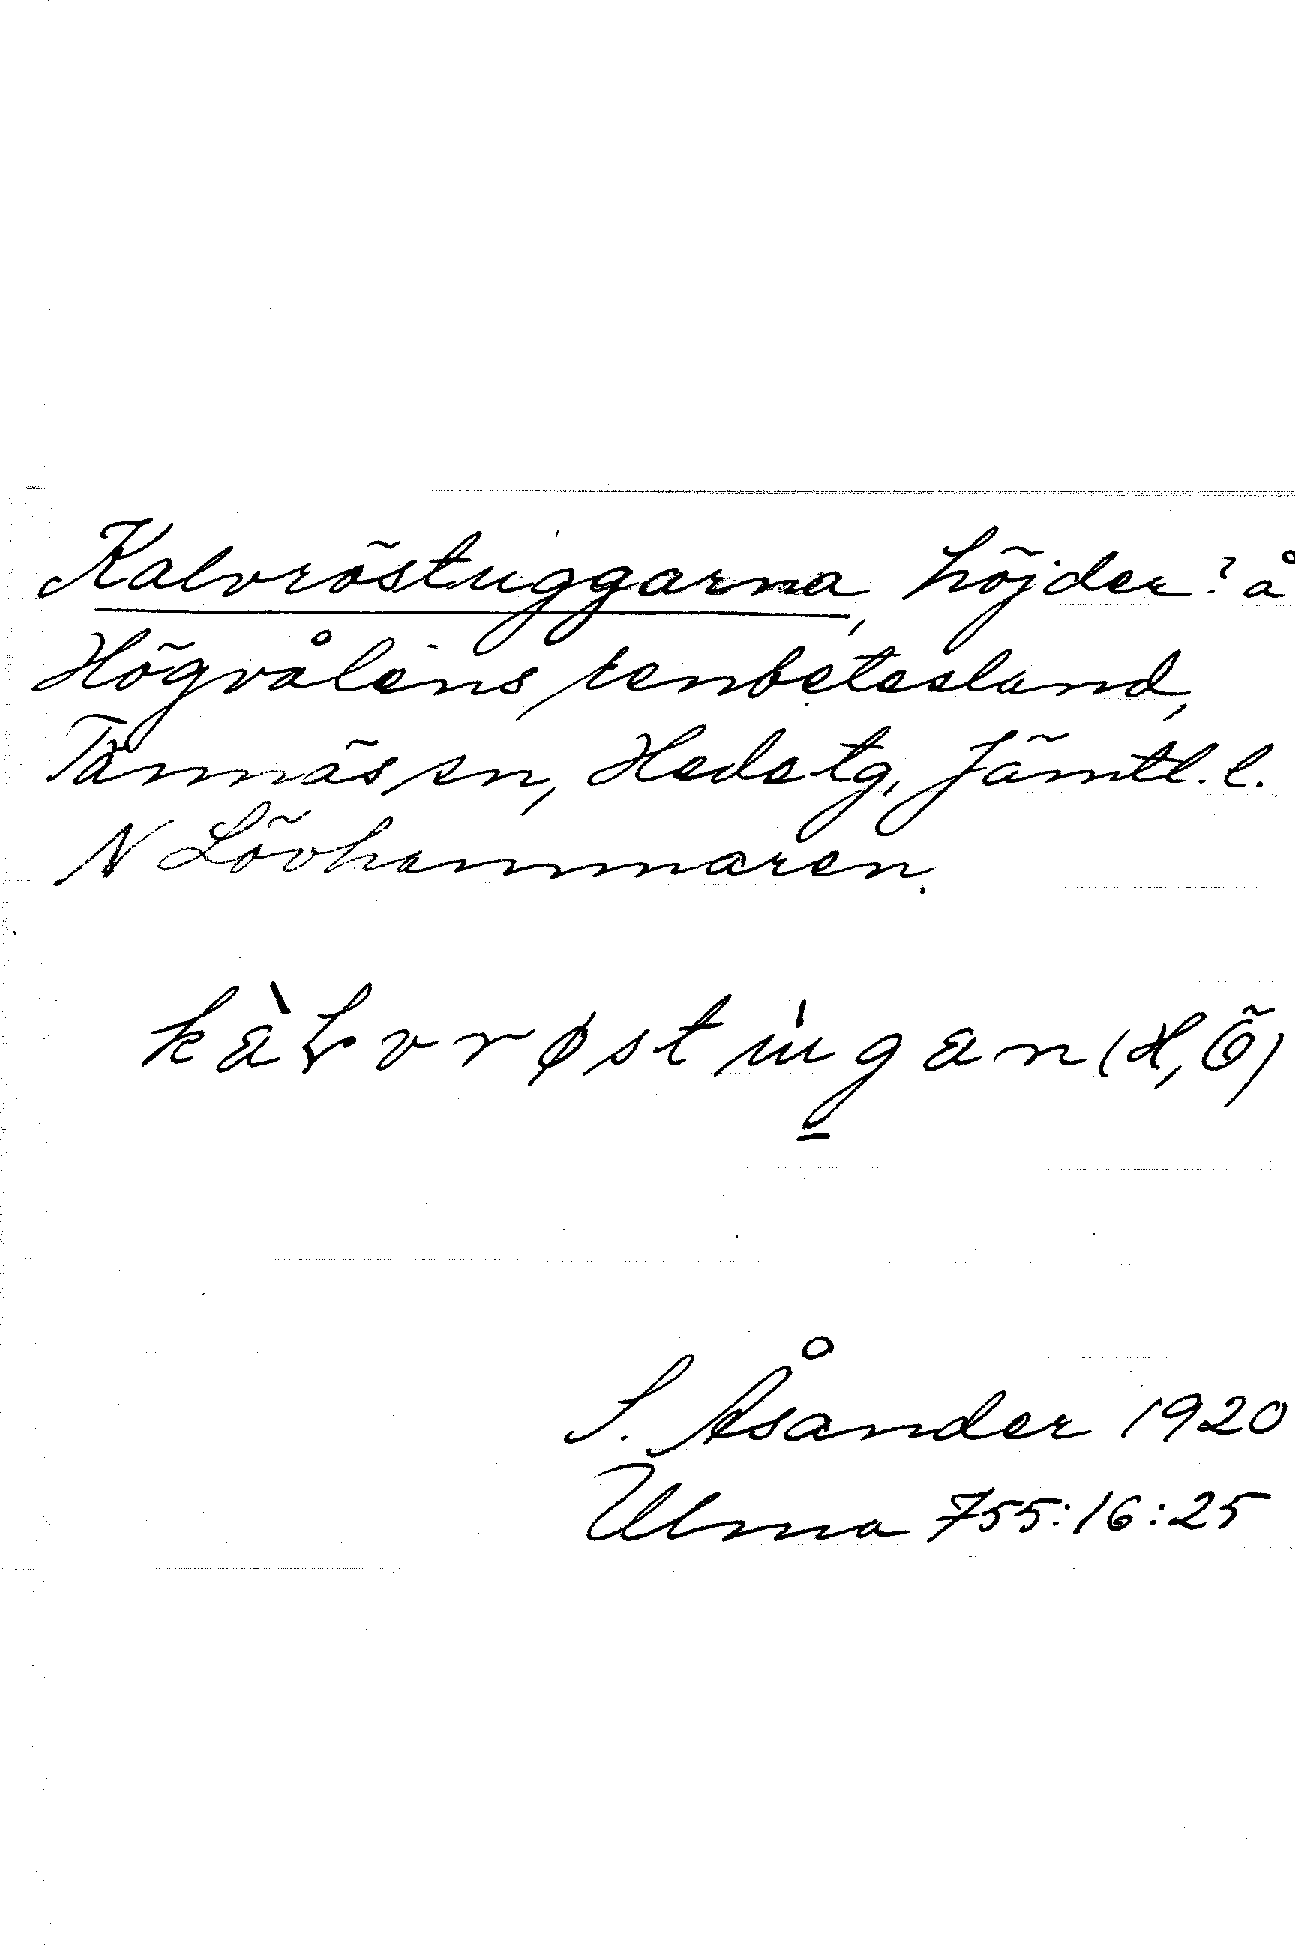 Kalvröstuggarna, höjder? å
Högvålens renbetesland,
Tännäs sn, Hede tg, Jämtl. l.
N Lövhammaren.
kàɫvrøstu̍gan (H, Ö)
S. Åsander 1920
Ulma 755:16:25